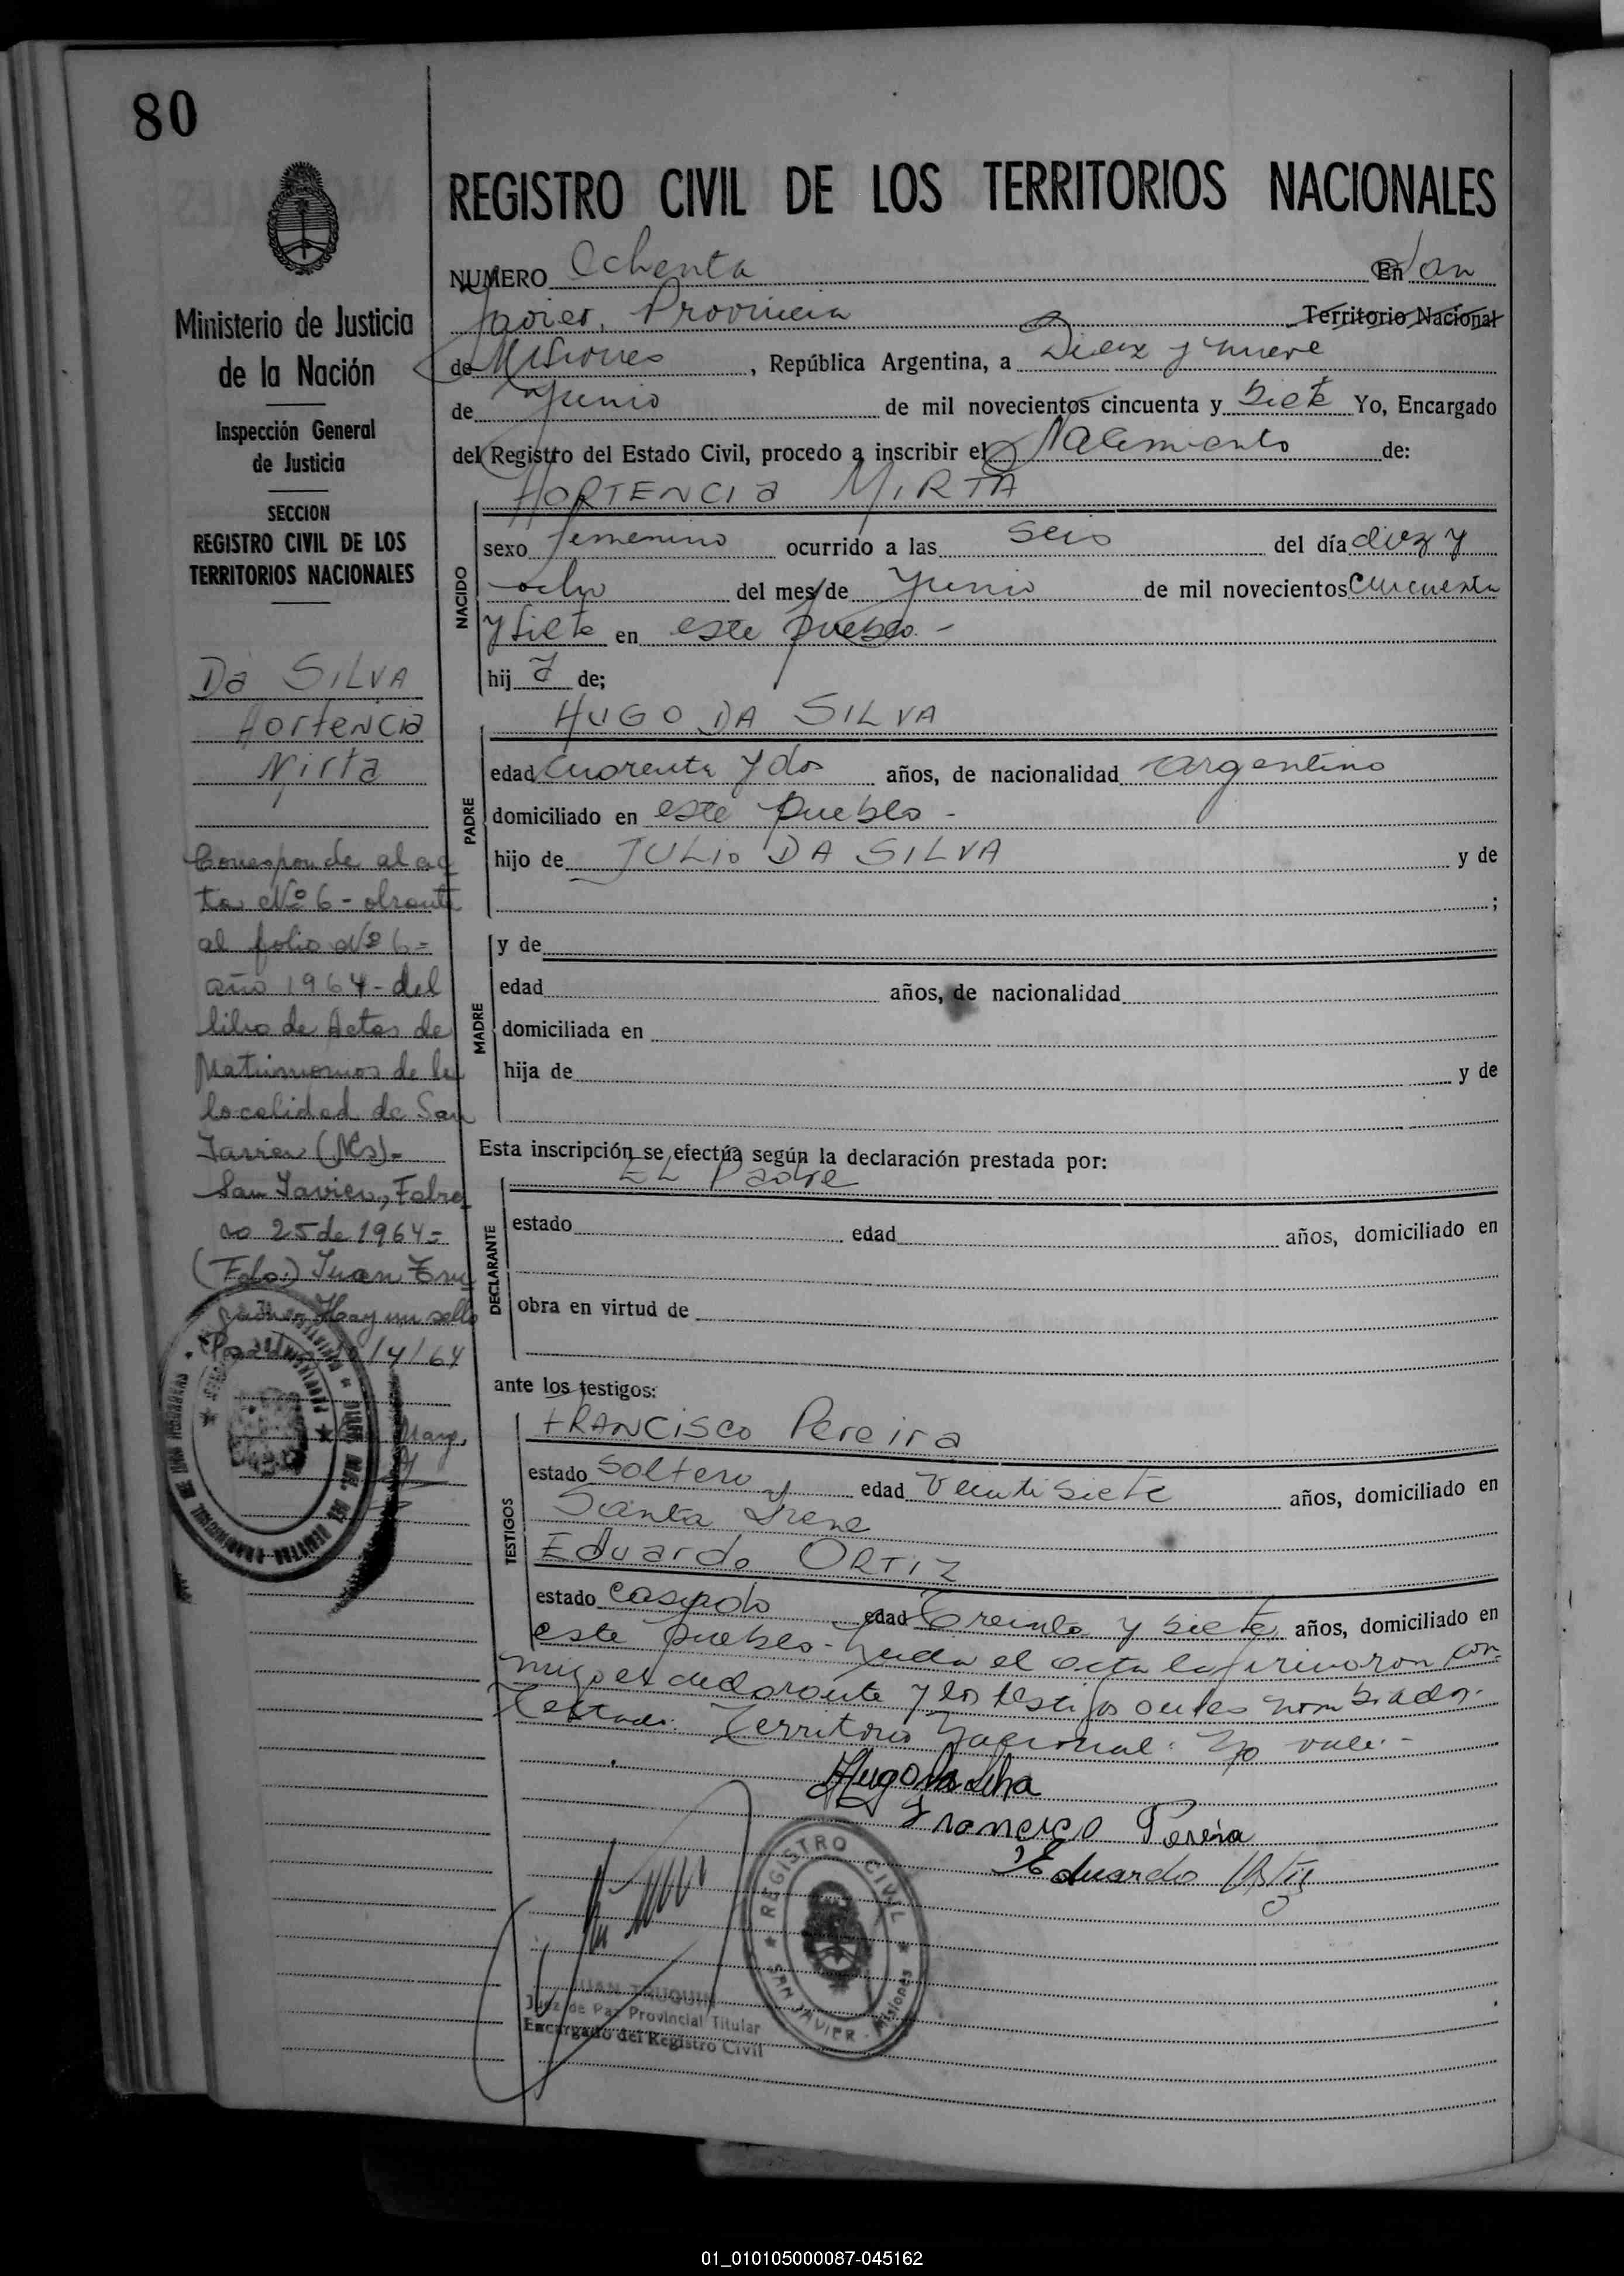 80
REGISTRO CIVIL DE LOS TERRITORIOS NACIONALES
NUMERO Ochenta En San
Javier, Provincia Territorio Nacional
de Misiones, República Argentina, a Diez y nueve
de Junio de mil novecientos cincuenta y siete Yo, Encargado
del Registro del Estado Civil, procedo a inscribir el Nacimiento de:
HORTENCIA MIRTA
NACIDO
sexo femenino ocurrido a las seis del día diez y
ocho del mes de Junio de mil novecientos cincuenta
y siete en este pueblo.-
hij a de;
HUGO DA SILVA
PADRE
edad cuarenta y dos años, de nacionalidad argentino
domiciliado en este pueblo -
hijo de JULIO DA SILVA y de
;
MADRE
y de
edad años, de nacionalidad
domiciliada en
hija de y de
Esta inscripción se efectúa según la declaración prestada por:
EL Padre
DECLARANTE
estado edad años, domiciliado en
obra en virtud de
ante los testigos:
TESTIGOS
FRANCISCO Pereira
estado Soltero edad Veintisiete años, domiciliado en
Santa Irene
Eduardo ORTIZ
estado casado edad Treinta y siete años, domiciliado en
este pueblo - Leida el acta la firmaron con-
migo el declarante y los testigos antes nombrados.
Testado: Territorio Nacional: No vale.-
Hugo Da Silva
Francisco Pereira
Eduardo Ortiz
REGISTRO CIVIL
SAN JAVIER - Misiones
JUAN
Juez de Paz Provincial Titular
Encargado del Registro Civil
Ministerio de Justicia
de la Nación
Inspección General
de Justicia
SECCION
REGISTRO CIVIL DE LOS
TERRITORIOS NACIONALES
Da SILVA
Hortencia
Mirta
Corresponde al ac
ta Nº 6 - obrante
al folio Nº 6 =
año 1964 - del
libro de Actas de
Matrimonios de la
localidad de San
Javier (Mes) -
San Javier, Febre
ro 25 de 1964 =
(Fdo.) Juan
Hay un sello
/4/64
01_010105000087-045162